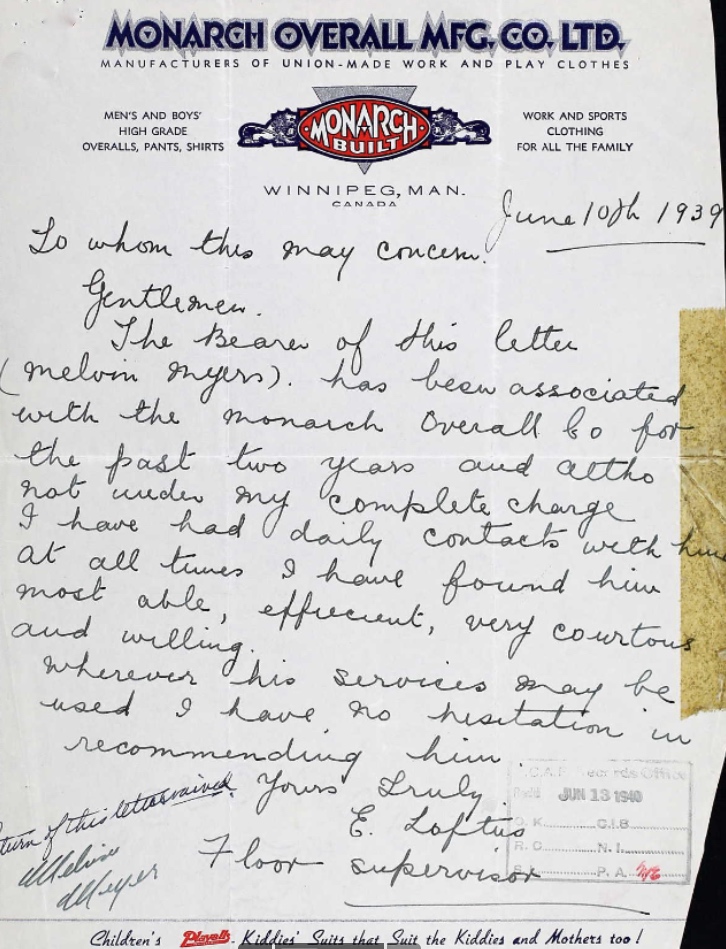 MONARCH OVERALL MFG. CO. LTD.
MANUFACTURERS OF UNION-MADE WORK AND PLAY CLOTHES
MEN'S AND BOYS'
HIGH GRADE
OVERALLS, PANTS, SHIRTS
MONARCH
BUILT
WORK AND SPORTS
CLOTHING
FOR ALL THE FAMILY
WINNIPEG, MAN.
CANADA
June 10th 1939
To whom this may concern.
Gentlemen.
The Bearer of this letter
(Melvin Myers). has been associated
with the Monarch Overall Co for
the past two years and altho
not under my complete charge
I have had daily contacts with him
at all times I have found him
most able, effiecient, very courtous
and willing.
Wherever his services may be
used I have no hesitation in
recommending him.
Yours Truly
E. Loftus
Floor supervisor
turn of this letter waived.
Melvin
Meyer
C.A.F. Records Office
JUN 13 1940
O.K. C.I.B
R.C. N.I.
P.A.
Children's Playalls. Kiddies' Suits that Suit the Kiddies and Mothers too!